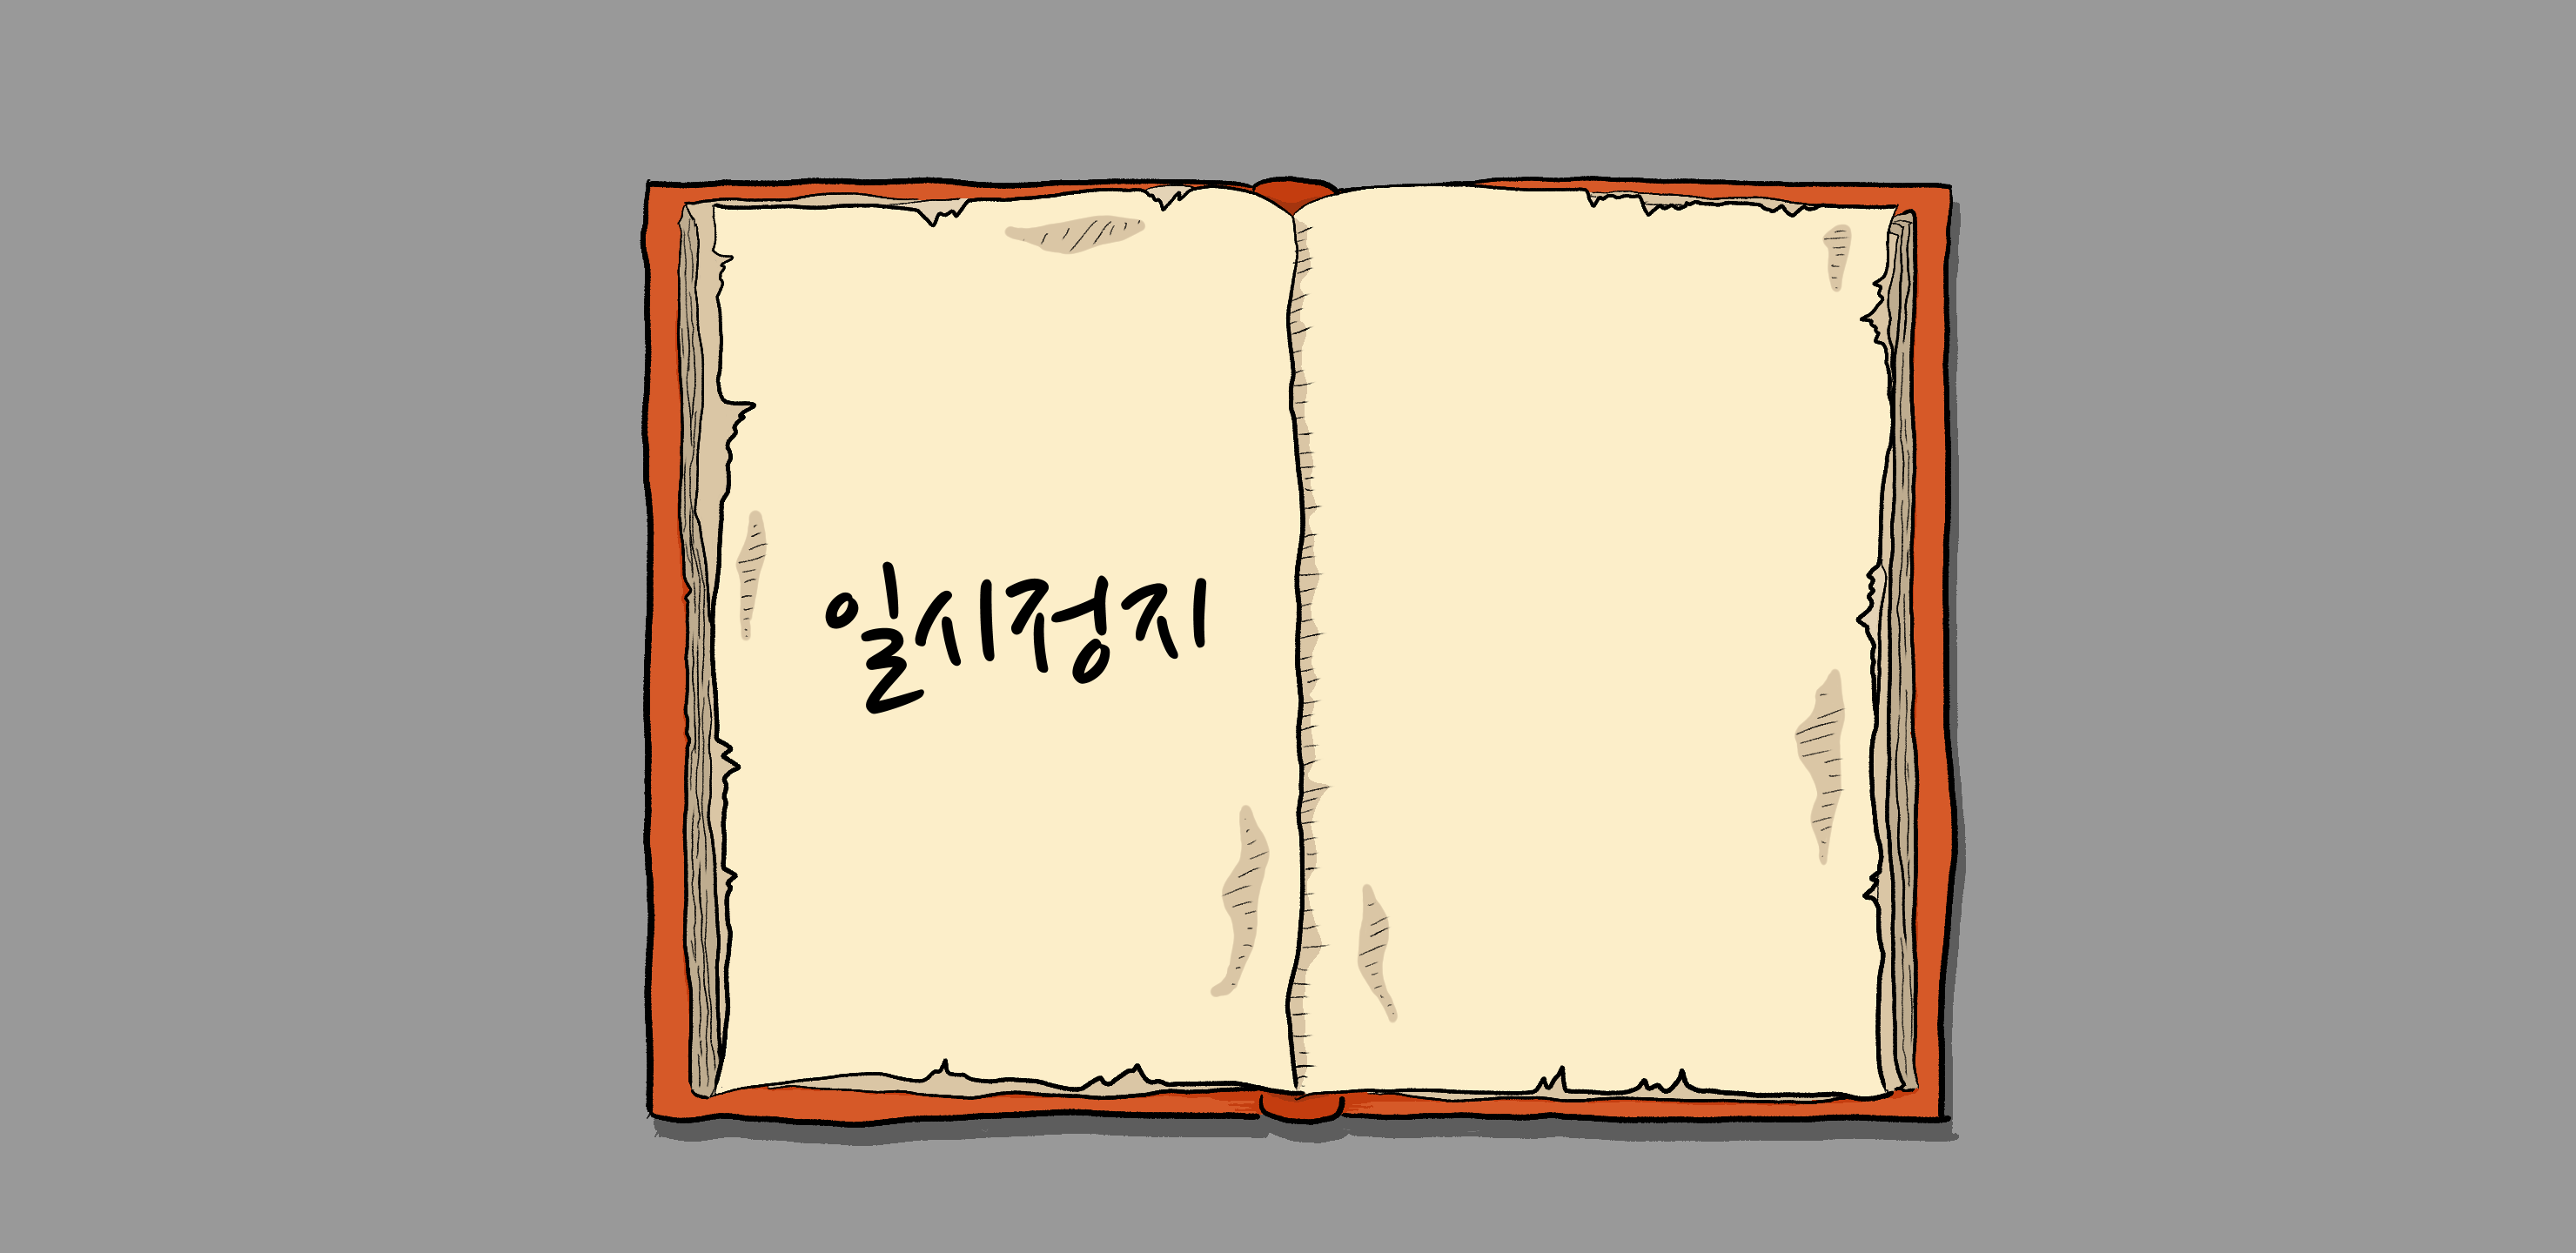 일시정지